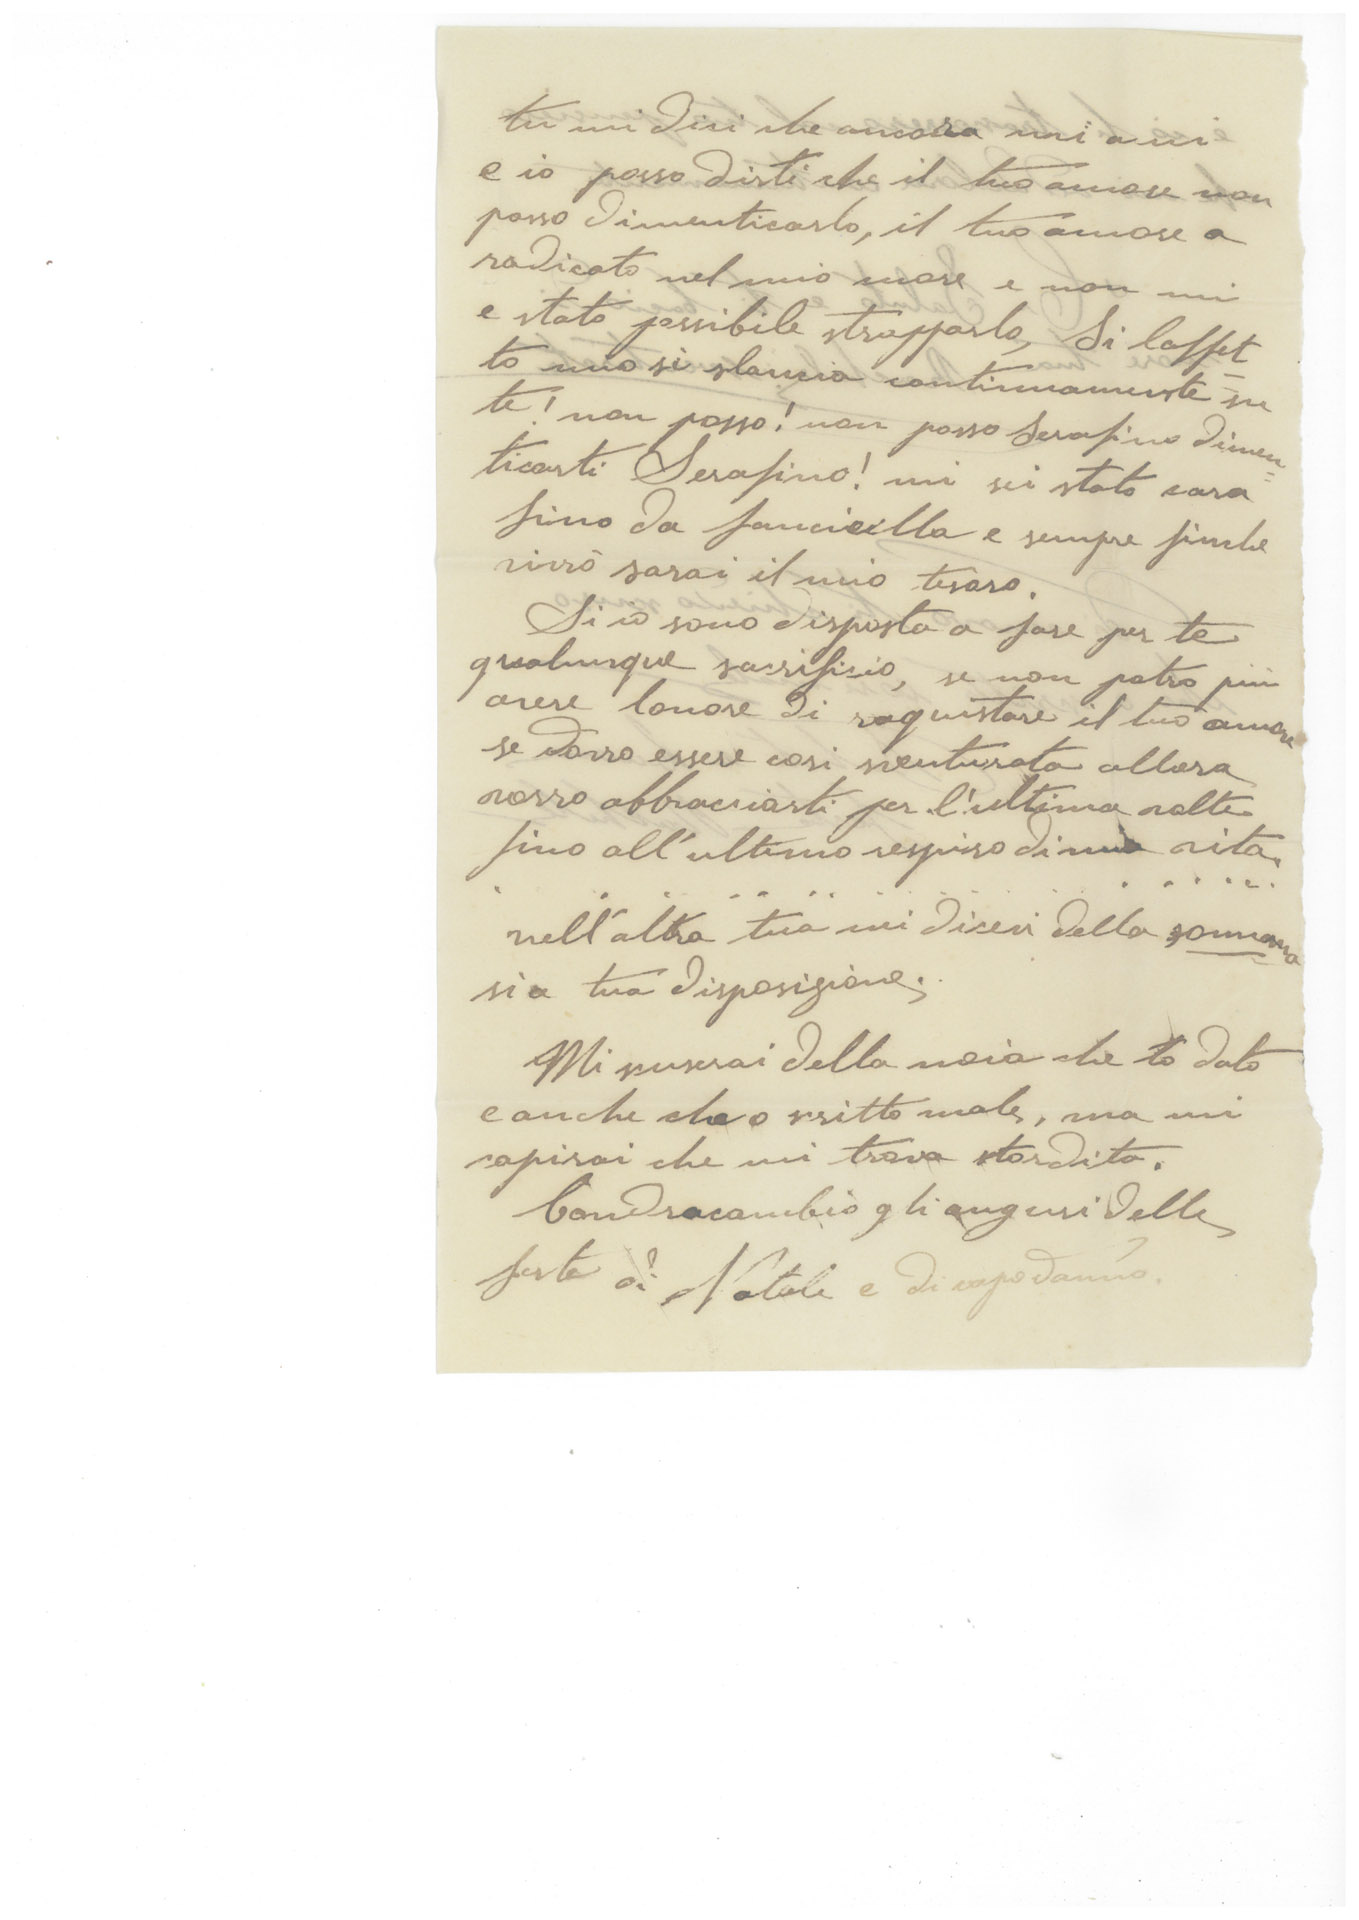 tu mi dici che ancora mi ami
e io posso dirti che il tuo amore non
posso dimenticarlo, il tuo amore a
radicato nel mio core e non mi
e stato possibile strapparlo, Si laffet
to mio si slancia continuamente su
te! non posso! non posso Serafino dimen=
ticarti Serafino! mi sei stato caro
fino da fanciulla e sempre finche
vivrò sarai il mio tesoro.
Si io sono disposta a fare per te
qualunque sacrificio, se non potro più
avere lonore di raquistare il tuo amore
se dovro essere cosi sventurata allora
vorro abbracciarti per l'ultima volta
fino all'ultimo respiro di mia vita.
nell'altra tua mi dicevi della somma
sia tua disposizione;
Mi scuserai della noia che to dato
e anche che o scritto male, ma mi
capirai che mi trovo stordita.
Condracambio gli auguri delle
feste di Natale e di capo danno.